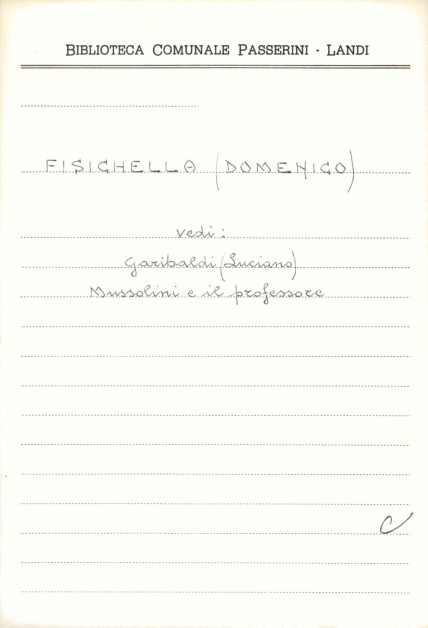 BIBLIOTECA COMUNALE PASSERINI - LANDI
FISICHELLA (DOMENICO)
vedi:
Garibaldi (Luciano)
Mussolini e il professore
C